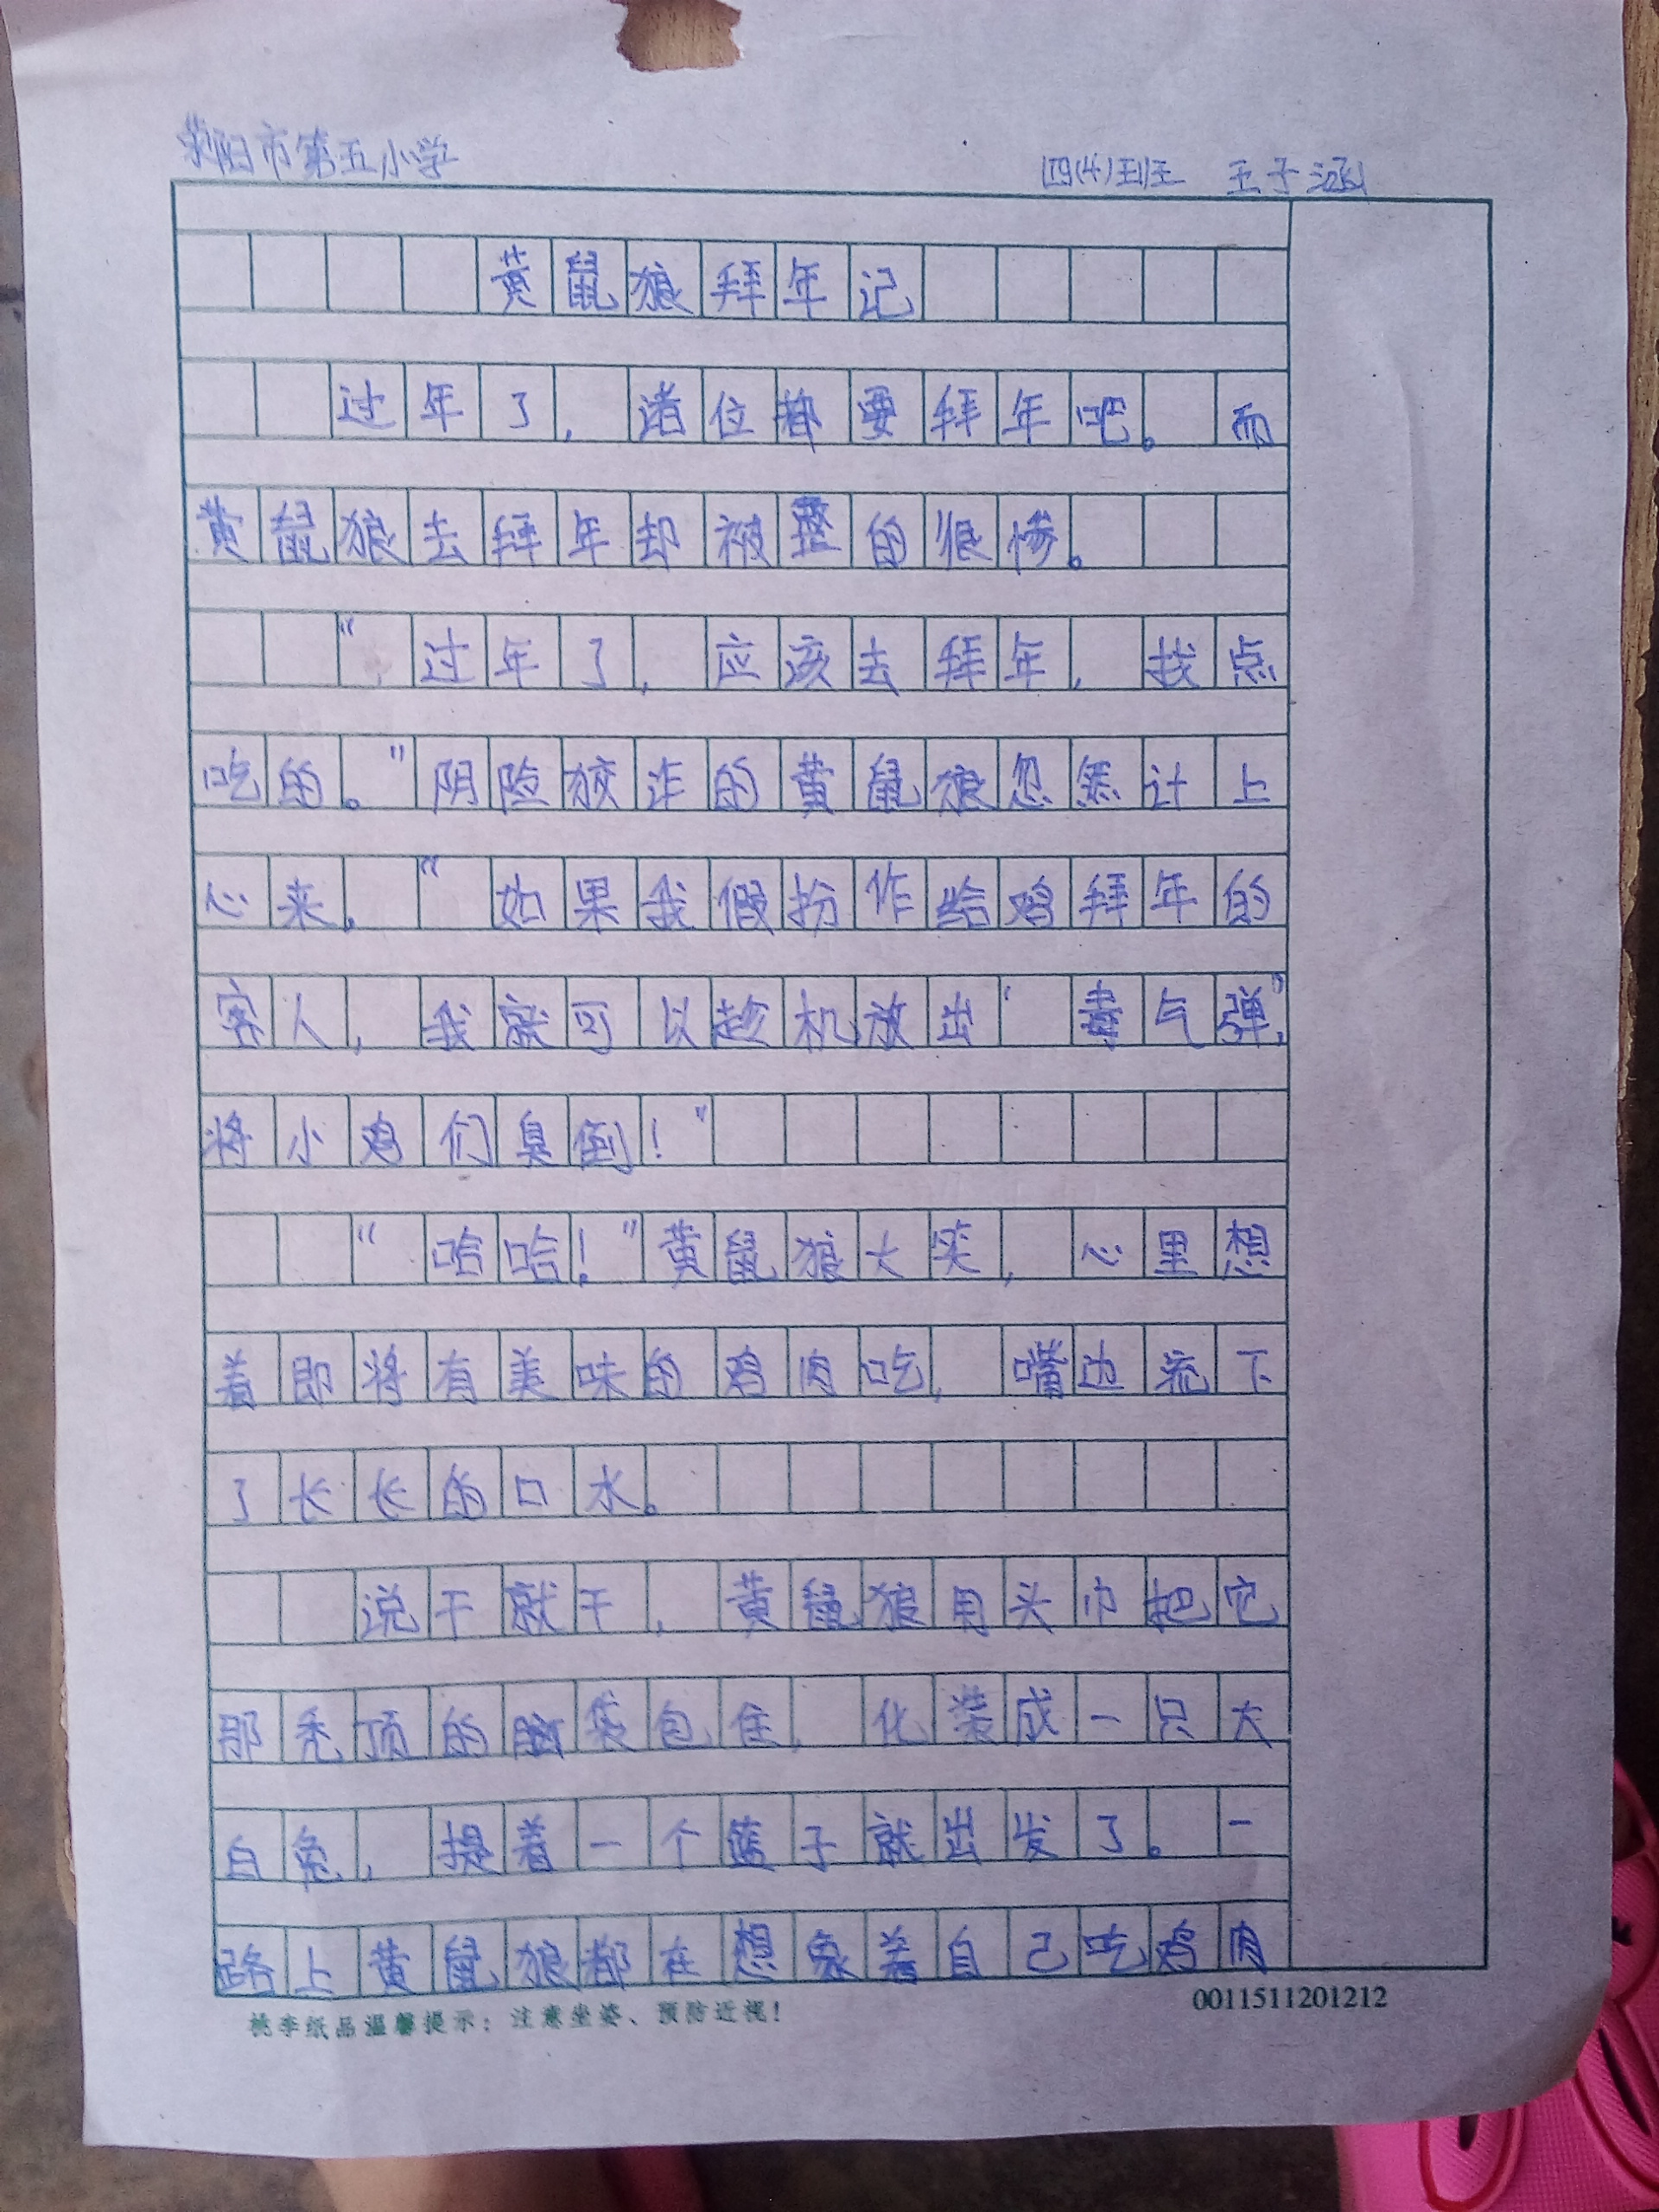 荥阳市第五小学 四(4)班 王子涵
黄鼠狼拜年记
过年了,诸位都要拜年吧。而
黄鼠狼去拜年却被整的很惨。
“过年了,应该去拜年,找点
吃的。”阴险狡诈的黄鼠狼忽然计上
心来,“如果我假扮作给鸡拜年的
客人,我就可以趁机放出‘毒气弹’,
将小鸡们臭倒!”
“哈哈!”黄鼠狼大笑,心里想
着即将有美味的鸡肉吃,嘴边流下
了长长的口水。
说干就干,黄鼠狼用头巾把它
那秃顶的脑袋包住,化装成一只大
白兔,提着一个篮子就出发了。一
路上黄鼠狼都在想象着自己吃鸡肉
桃李纸品温馨提示:注意坐姿、预防近视!
0011511201212